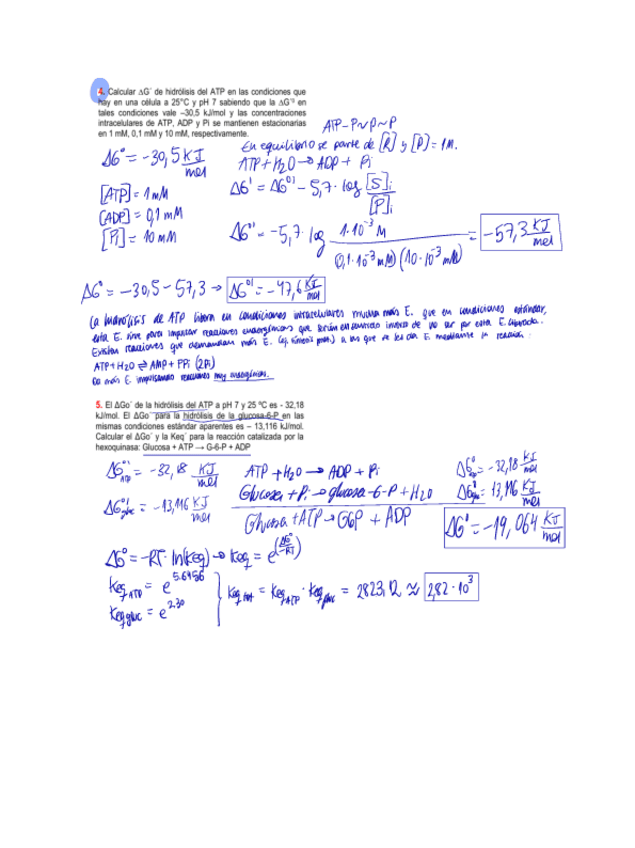 4. Calcular ΔG´ de hidrólisis del ATP en las condiciones que
hay en una célula a 25°C y pH 7 sabiendo que la ΔG´º en
tales condiciones vale –30,5 kJ/mol y las concentraciones
intracelulares de ATP, ADP y Pi se mantienen estacionarias
en 1 mM, 0,1 mM y 10 mM, respectivamente.
ATP-P~P~P
En equilibrio se parte de [R] y [P] = 1M.
ΔG° = -30,5 KJ/mol
ATP + H2O → ADP + Pi
[ATP] = 1 mM
ΔG' = ΔG°' - 5,7 · log [S]i/[P]i
[ADP] = 0,1 mM
[Pi] = 10 mM
ΔG°' = -5,7 · log 1·10^-3 M / (0,1·10^-3 mM)(10·10^-3 mM) = -57,3 KJ/mol
ΔG° = -30,5 - 57,3 → ΔG°' = -47,6 KJ/mol
La hidrólisis de ATP libera en condiciones intracelulares mucha más E. que en condiciones estándar,
esta E. sirve para impulsar reacciones endergónicas que serían en sentido inverso de no ser por esta E. liberada.
Existen reacciones que demandan más E. (ej. síntesis prot.) a las que se les da E. mediante la reacción:
ATP + H2O ⇌ AMP + PPi (2Pi)
Da más E. impulsando reacciones muy endergónicas.
5. El ΔGo´ de la hidrólisis del ATP a pH 7 y 25 ºC es - 32,18
kJ/mol. El ΔGo´ para la hidrólisis de la glucosa-6-P en las
mismas condiciones estándar aparentes es – 13,116 kJ/mol.
Calcular el ΔGo´ y la Keq´ para la reacción catalizada por la
hexoquinasa: Glucosa + ATP → G-6-P + ADP
ΔG°'ATP = -32,18 KJ/mol
ATP + H2O → ADP + Pi
ΔG°ATP = -32,18 KJ/mol
ΔG°'gluc = -13,116 KJ/mol
Glucosa + Pi → glucosa-6-P + H2O
ΔG°gluc = 13,116 KJ/mol
Glucosa + ATP → G6P + ADP
ΔG' = -19,064 KJ/mol
ΔG° = -RT · ln(Keq) → Keq = e^(ΔG°/-RT)
KeqATP = e^5.6456
Keqgluc = e^2.30
Keq tot = KeqATP · Keqgluc = 2823,12 ≈ 2,82 · 10^3